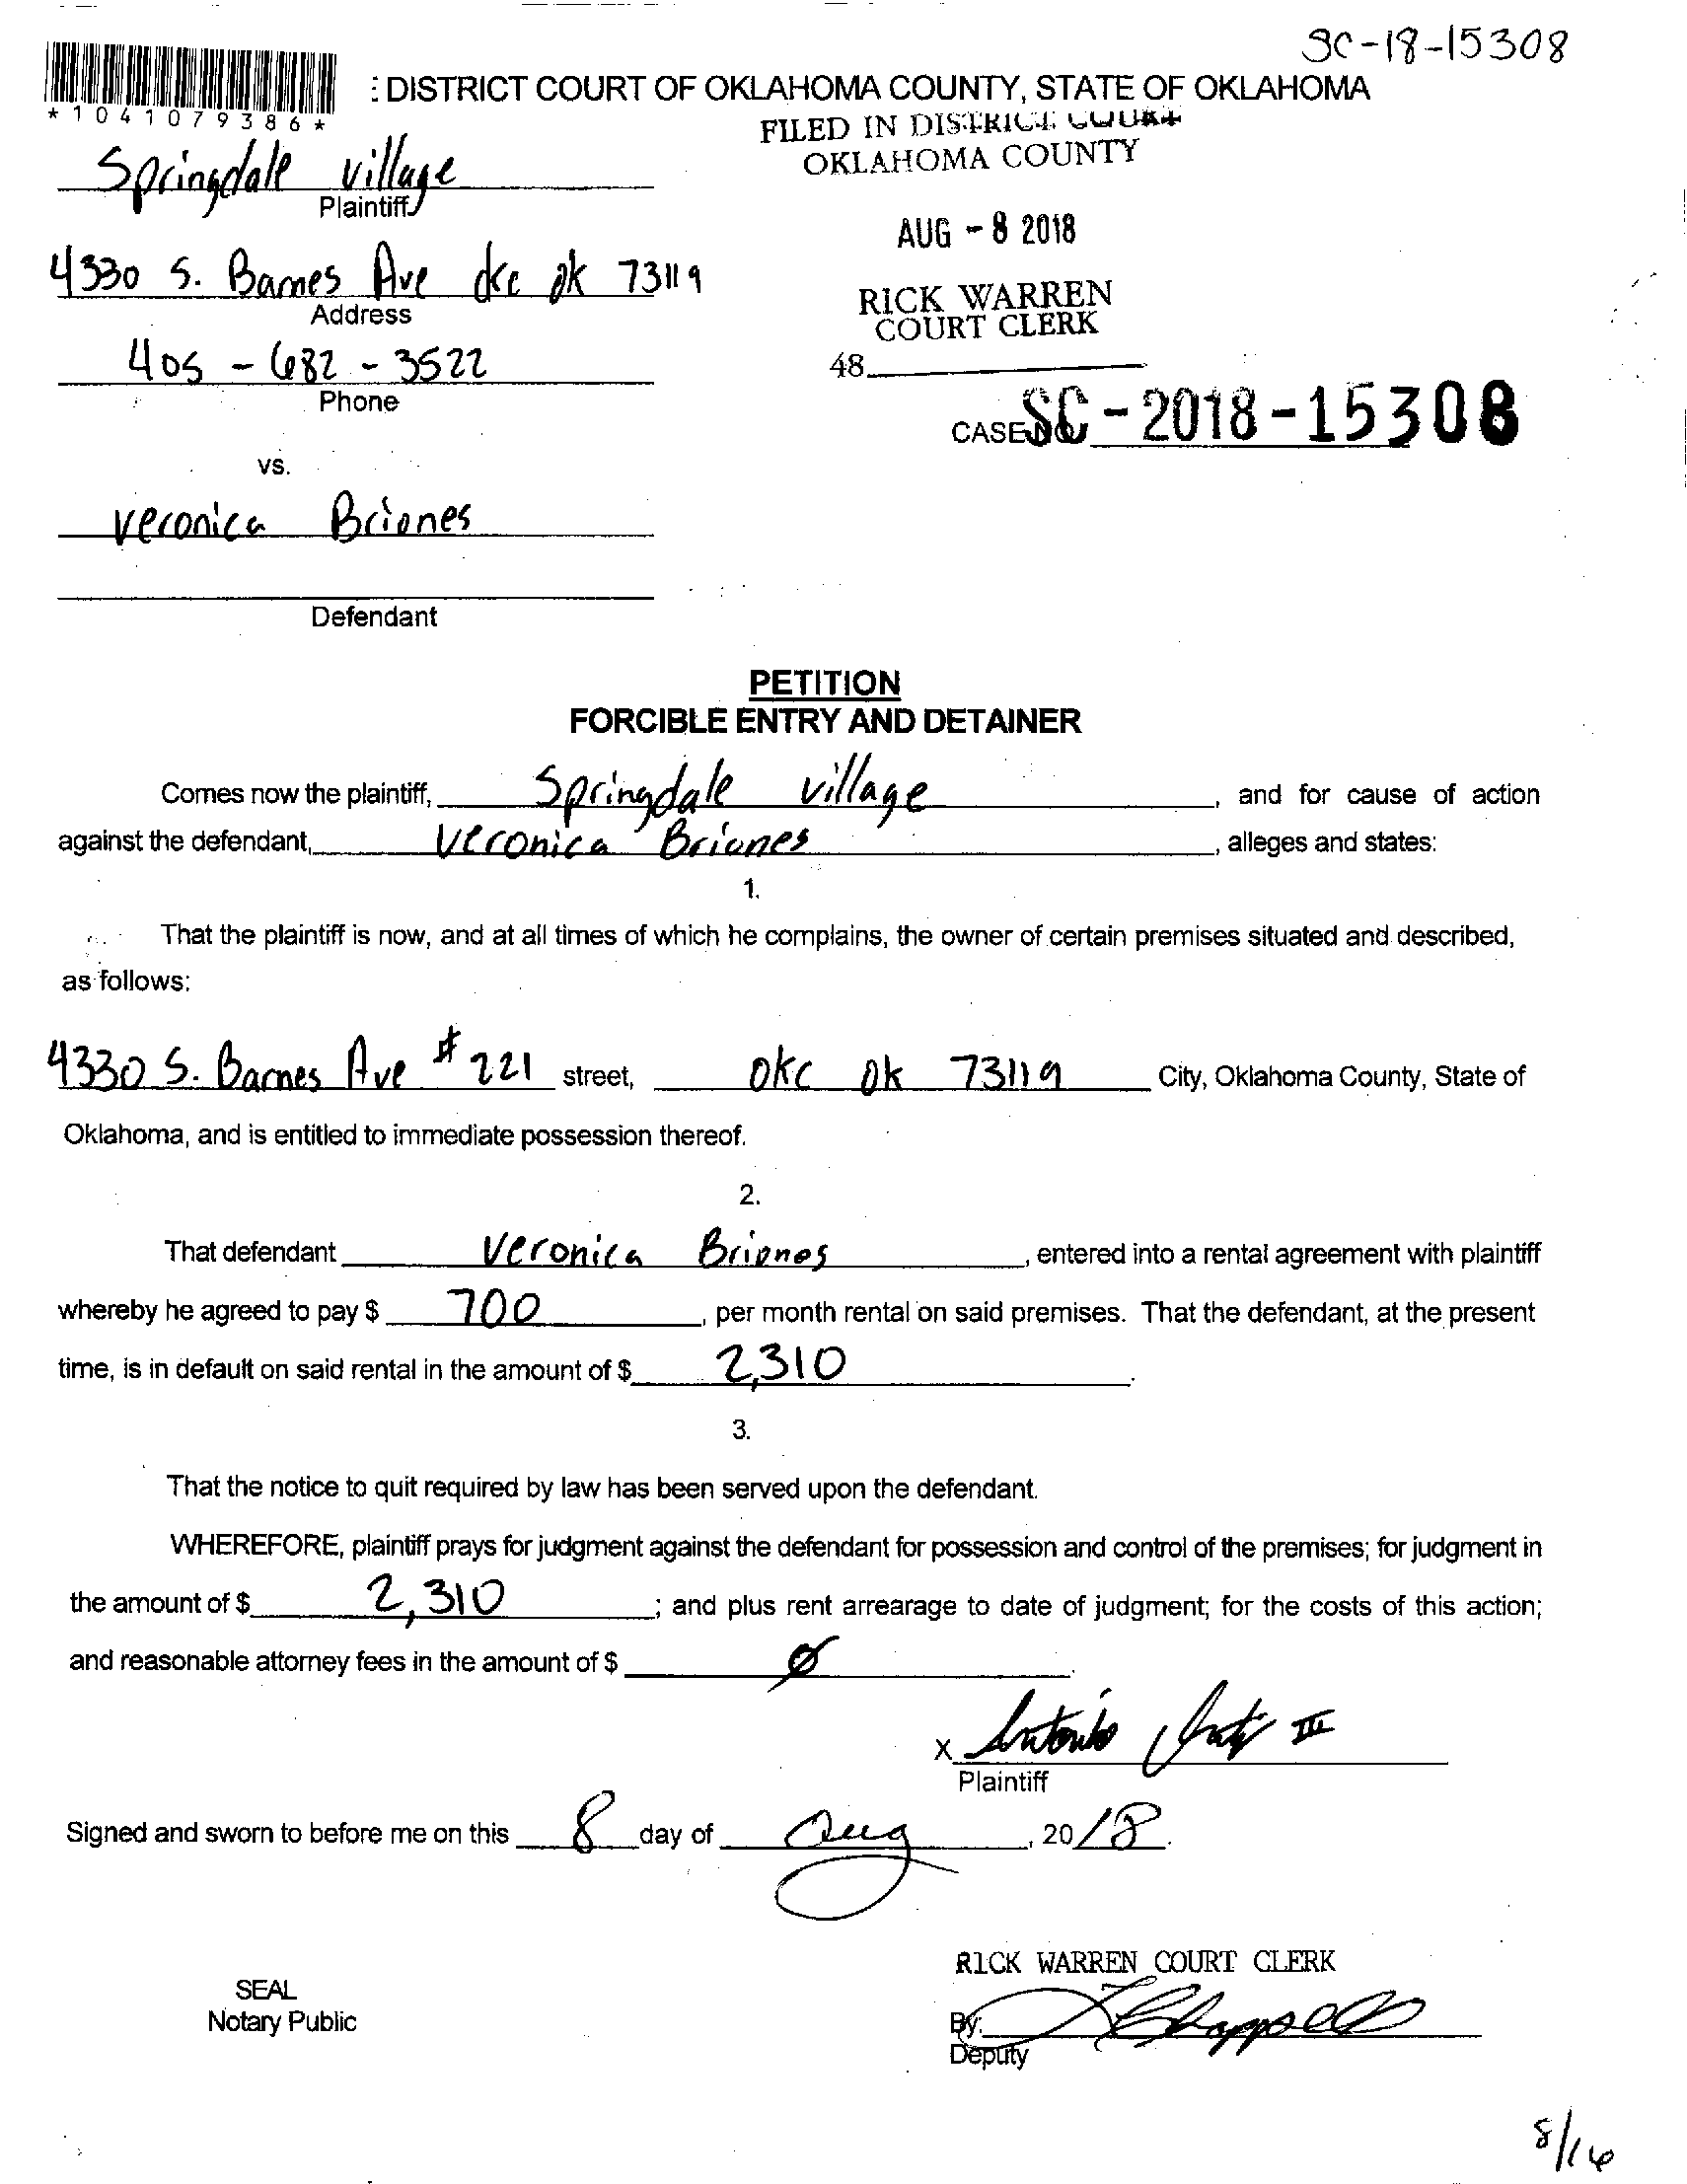 SC-18-15308
: DISTRICT COURT OF OKLAHOMA COUNTY, STATE OF OKLAHOMA
*1041079386*
FILED IN DISTRICT COURT
OKLAHOMA COUNTY
Springdale village
Plaintiff
AUG - 8 2018
4330 S. Barnes Ave okc ok 73119
Address
RICK WARREN
COURT CLERK
405 - 682 - 3522
Phone
48
CASE NO. SC - 2018 - 15308
vs.
Veronica Briones
Defendant
PETITION
FORCIBLE ENTRY AND DETAINER
Comes now the plaintiff, Springdale village, and for cause of action
against the defendant, Veronica Briones, alleges and states:
1.
That the plaintiff is now, and at all times of which he complains, the owner of certain premises situated and described,
as follows:
4330 S. Barnes Ave # 221 street, OKC OK 73119 City, Oklahoma County, State of
Oklahoma, and is entitled to immediate possession thereof.
2.
That defendant Veronica Briones, entered into a rental agreement with plaintiff
whereby he agreed to pay $ 700, per month rental on said premises. That the defendant, at the present
time, is in default on said rental in the amount of $ 2,310.
3.
That the notice to quit required by law has been served upon the defendant.
WHEREFORE, plaintiff prays for judgment against the defendant for possession and control of the premises; for judgment in
the amount of $ 2,310; and plus rent arrearage to date of judgment; for the costs of this action;
and reasonable attorney fees in the amount of $ Ø.
X Antonio III
Plaintiff
Signed and sworn to before me on this 8 day of Aug, 2018.
RICK WARREN COURT CLERK
SEAL
Notary Public
By: Chappell
Deputy
8/16